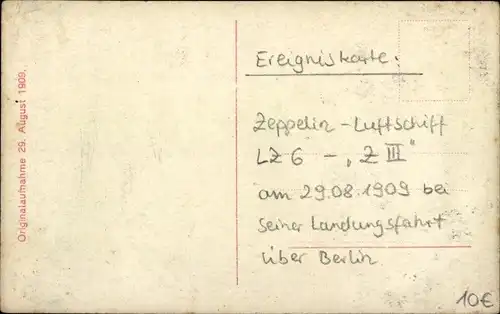 Originalaufnahme 29. August 1909.
Ereigniskarte:
Zeppelin-Luftschiff
LZ 6 - „Z III"
am 29.08.1909 bei
seiner Landungsfahrt
über Berlin
10€